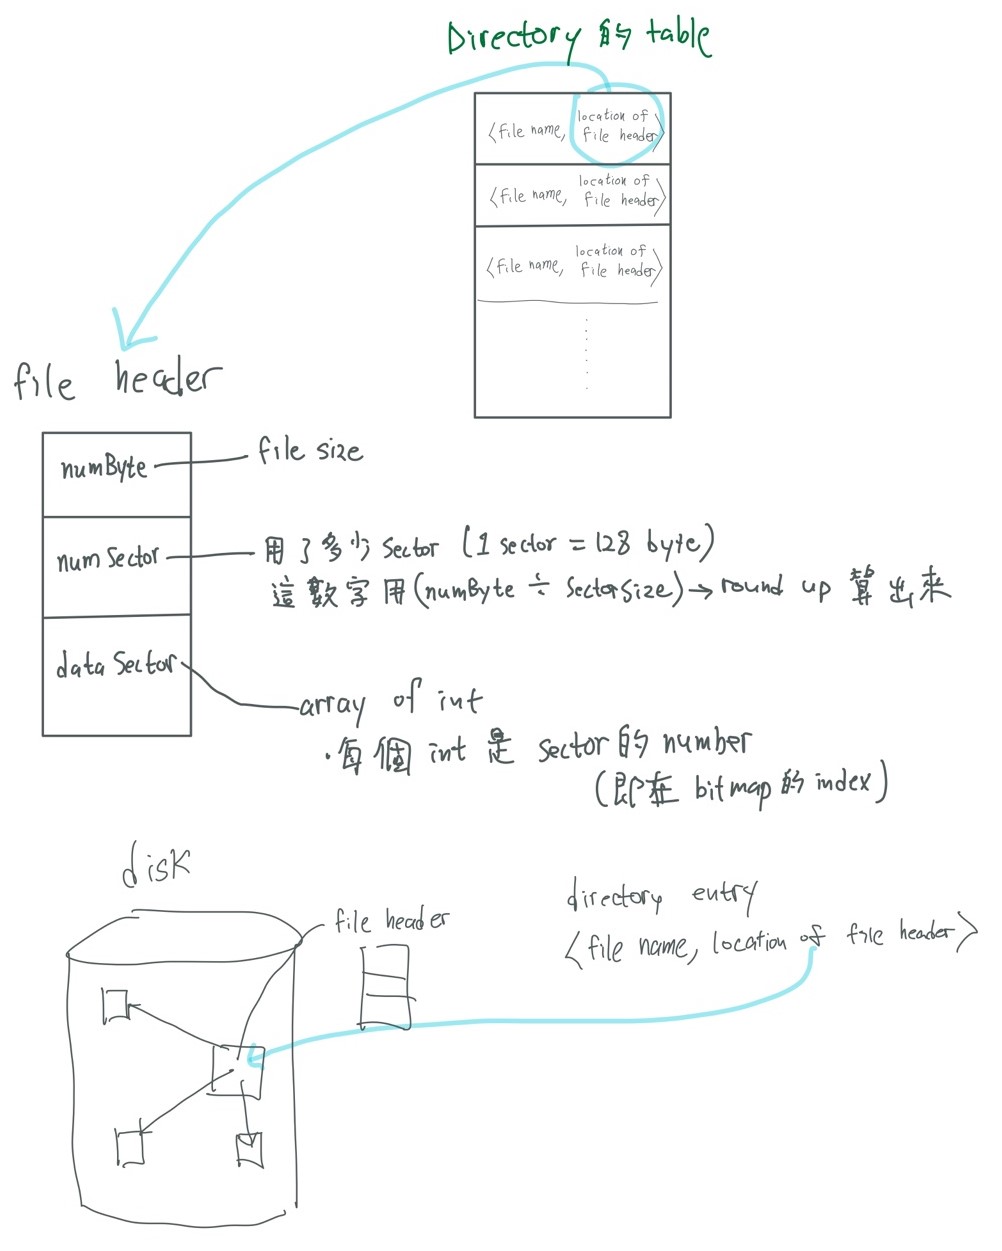 Directory 的 table
<file name, location of file header>
<file name, location of file header>
<file name, location of file header>
file header
numByte
file size
numSector
用了多少 Sector (1 sector = 128 byte)
這數字用(numByte ÷ SectorSize)→ round up 算出來
dataSector
array of int
·每個 int 是 sector 的 number
(即在 bitmap 的 index)
disk
file header
directory entry
<file name, location of file header>